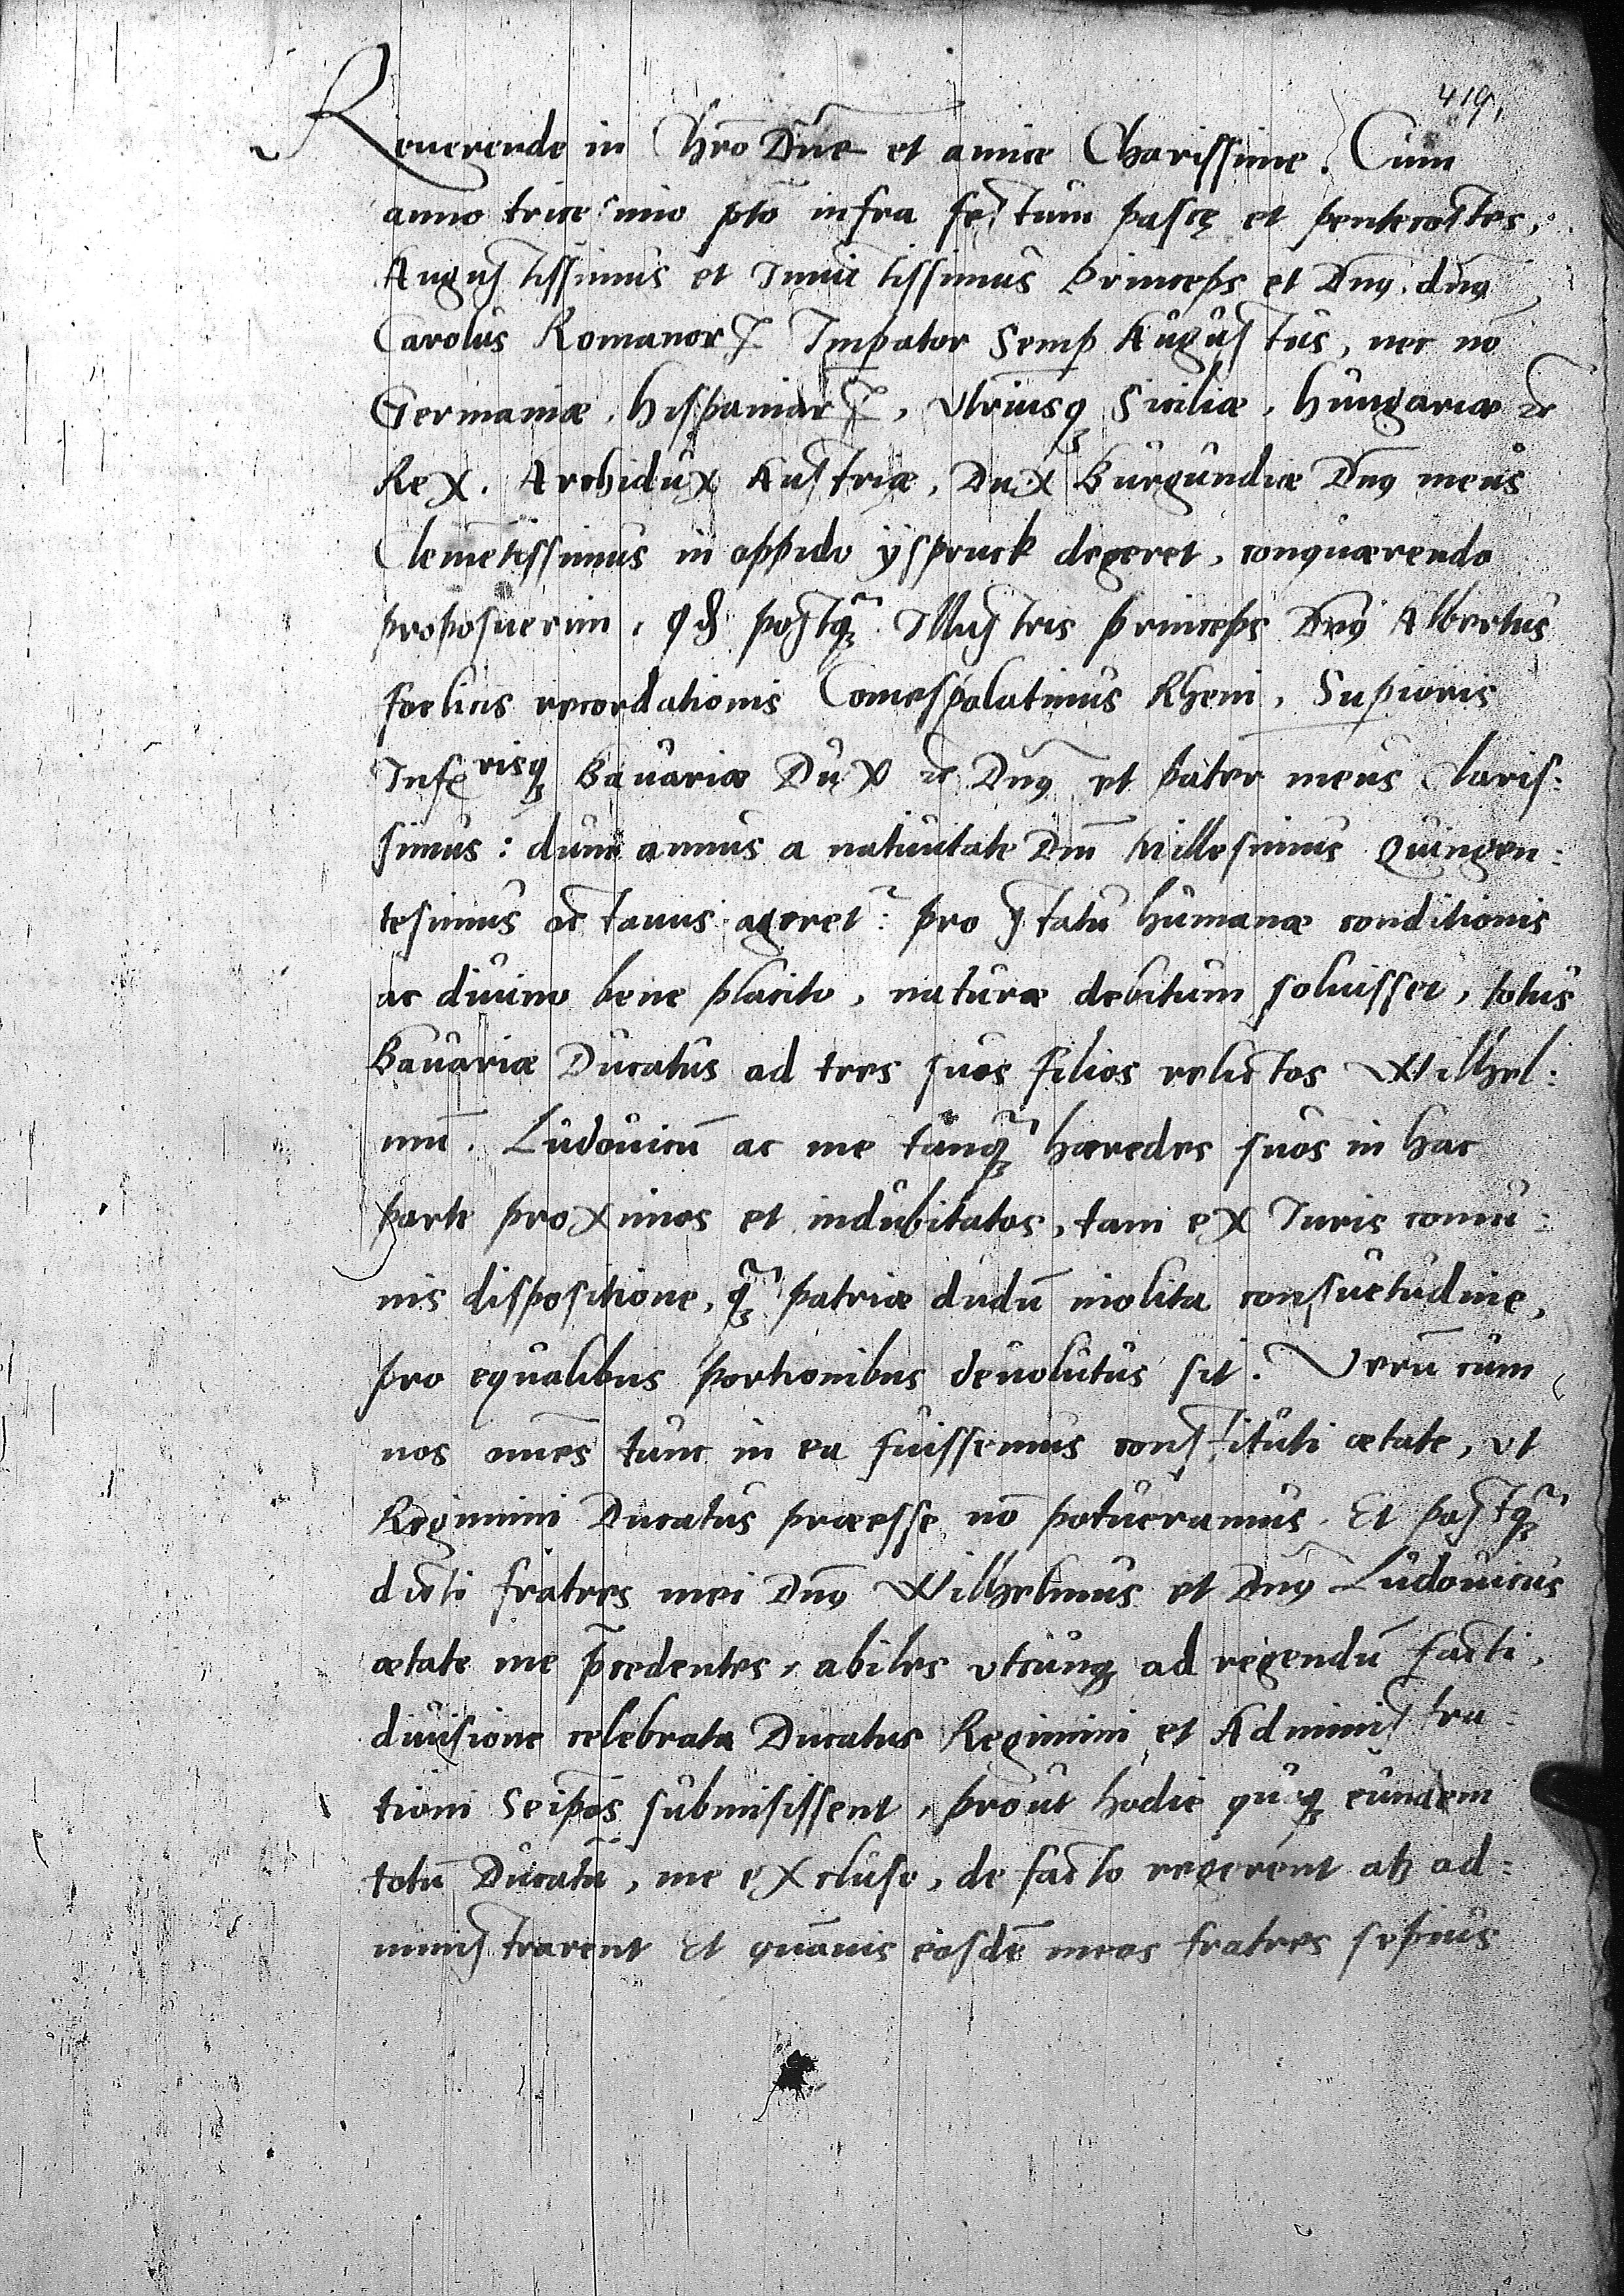 419,
Reuerende in Chrō Dn̄e et amice Charissime. Cum
anno tricesimo pto infra festum pascę et pentecostes,
Augustissimus et Inuictissimus Princeps et Dn̄s. dn̄s
Carolus Romanorꝝ Imꝑator Semꝑ Augustus, nec nō
Germaniæ, Hispaniarꝝ, vtriusqꝫ Siciliæ, Hungariæ ꝛc
Rex. Archidux Austriæ, Dux Burgundiæ Dn̄s meus
Clemētissimus in oppido ÿspruck degeret, conquærendo
proposuerim, qđ postqꝫ Illustris princeps Dn̄s Albertus
foelicis recordationis Comes palatinus Rheni, Suꝑioris
Inferisqꝫ Bauariæ Dux ꝛc Dn̄s et pater meus Claris:
simus: dum annus a natiuitate Dnī Millesimus Quingen:
tesimus octauus ageret: pro statu humanæ conditionis
ac diuino bene placito, naturæ debitum soluisset, totus
Bauariæ Ducatus ad tres suos filios relictos Wilhel:
mū. Ludouicū ac me tanqꝫ hæredes suos in hac
parte proximos et indubitatos, tam ex Iuris comu:
nis dispositione, qꝫ patriæ dudū inolita consuetudine,
pro equalibus portionibus deuolutus sit. Verū cum
nos om̄es tunc in ea fuissemus constituti ætate, vt
Regimini Ducatus præesse nō potueramus. Et postqꝫ
dicti fratres mei Dn̄s Wilhelmus et Dn̄s Ludouicus
ætate me p̄cedentes, abiles vtcunqꝫ ad regendū facti,
diuisione celebrata Ducatus Regimini et Administra:
tioni Seip̄os submisissent, prout hodie quoqꝫ eundem
totū Ducatū, me excluso, de facto regerent atqꝫ ad:
ministrarent Et quāuis eosdē meos fratres sepius